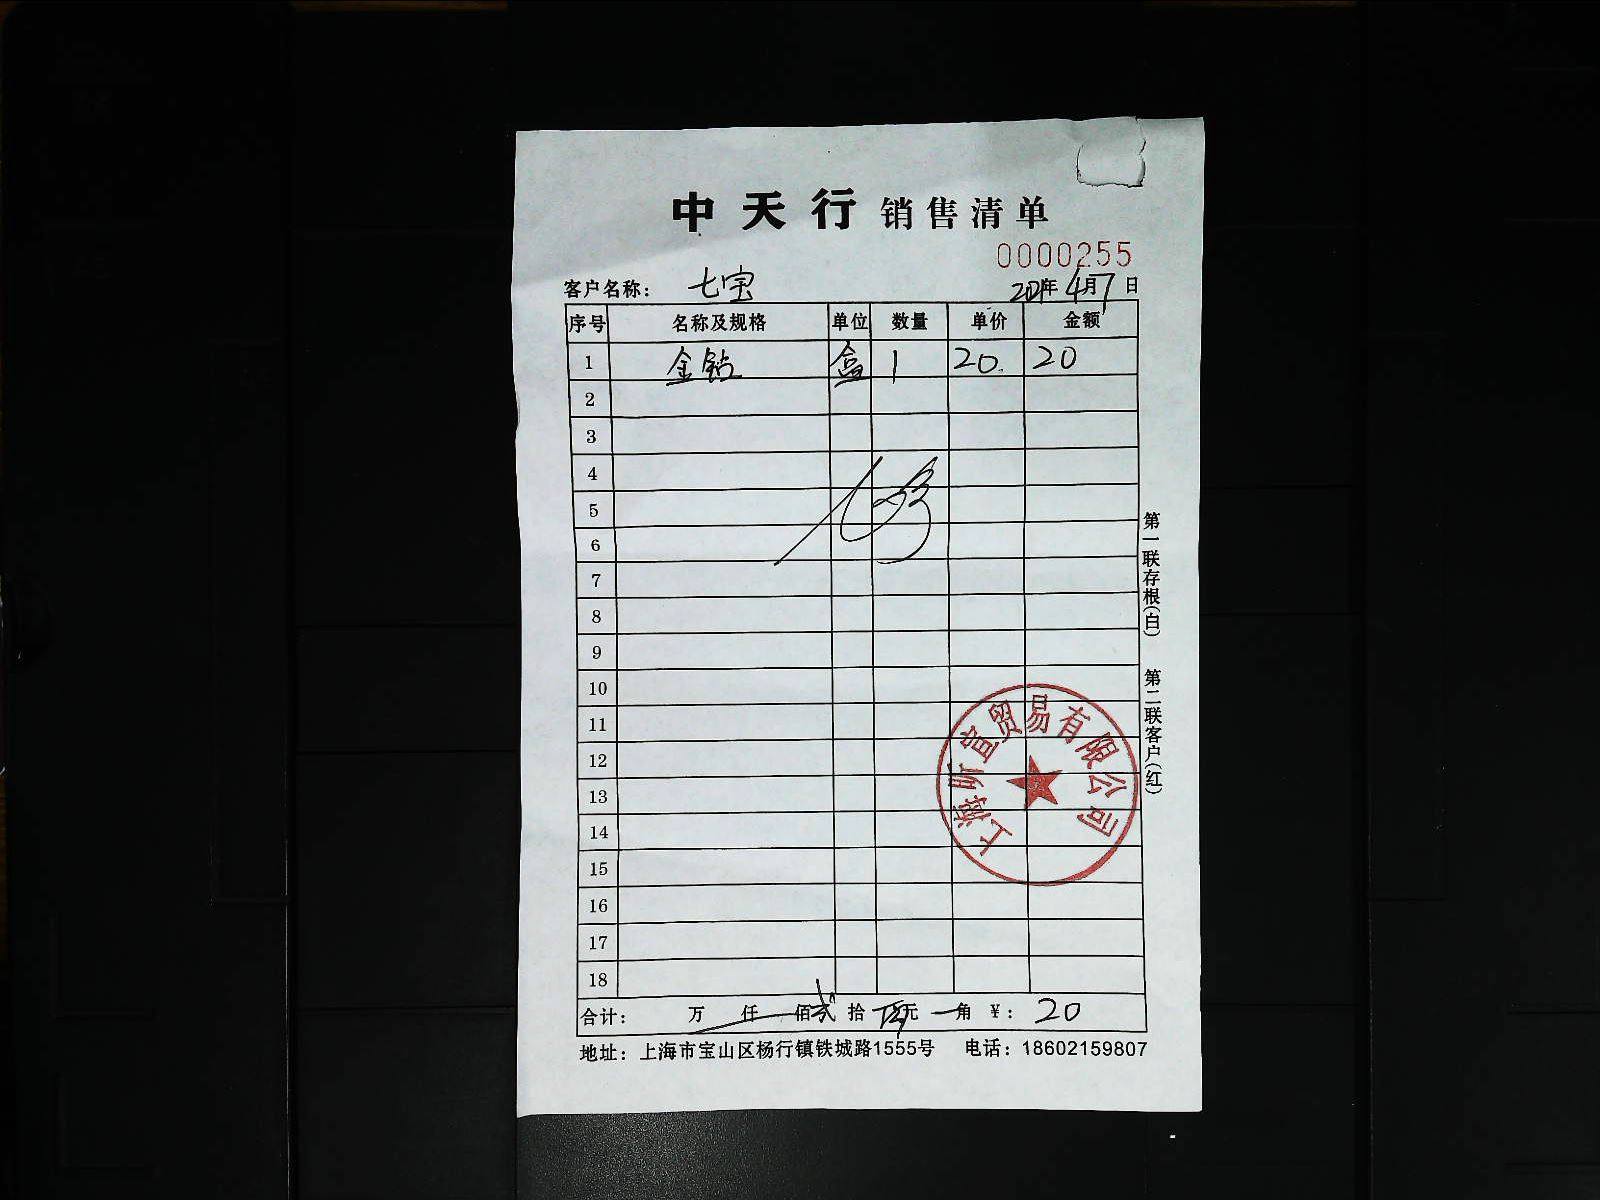 中天行 销售清单
0000255
客户名称： 七宝 年4月7日
序号 名称及规格 单位 数量 单价 金额
1 金钻 盒 1 20. 20
2
3
4
5
6
7
8
9
10
11
12
13
14
15
16
17
18
合计： 万 仟 佰 贰 拾 元 角 ¥： 20
地址：上海市宝山区杨行镇铁城路1555号 电话：18602159807
第一联存根(白) 第二联客户(红)
上海昕宣贸易有限公司